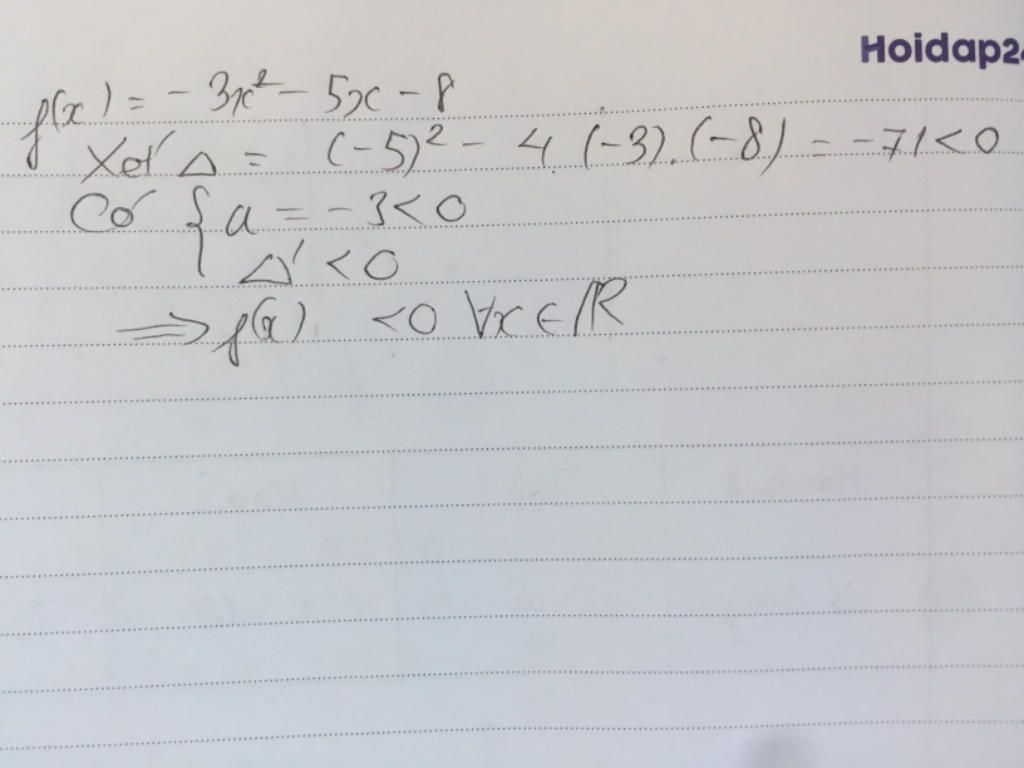 Hoidap24
f(x) = - 3x² - 5x - 8
Xét Δ = (-5)² - 4.(-3).(-8) = -71 < 0
Có { a = -3 < 0
Δ' < 0
⇒ f(x) < 0 ∀x ∈ ℝ